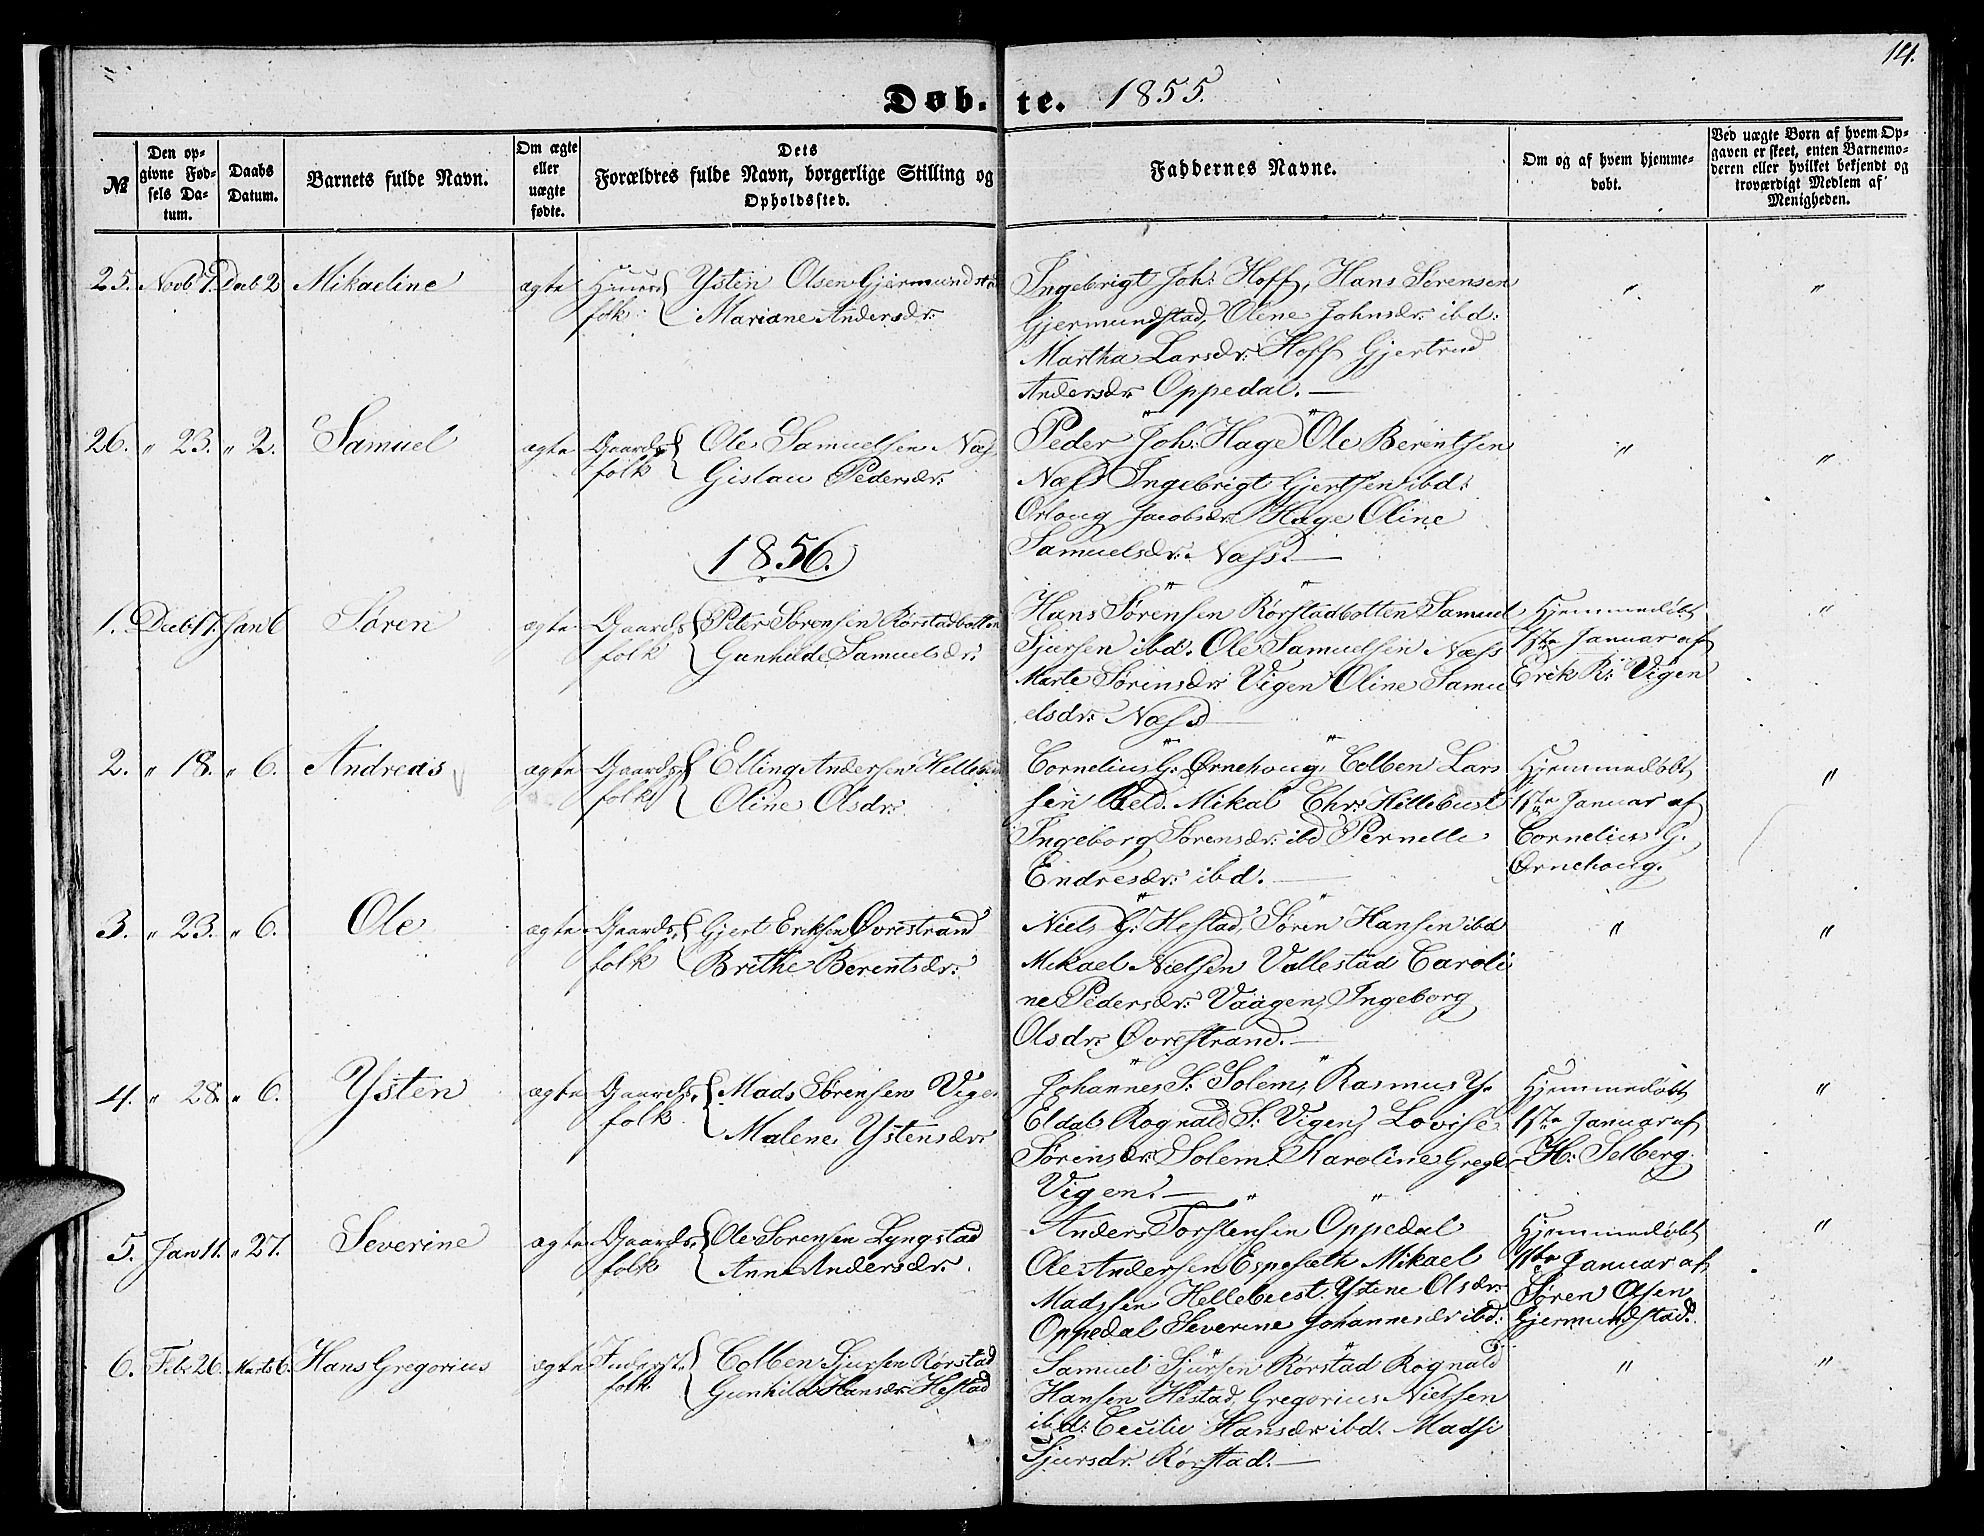 14.
Døb- te. 1855.
№
Den opgivne Fødsels Datum.
Daabs Datum.
Barnets fulde Navn.
Om ægte eller uægte fødte.
Dets Forældres fulde Navn, borgerlige Stilling og Opholdssted.
Faddernes Navne.
Om og af hvem hjemmedøbt.
Ved uægte Børn af hvem Opgaven er skeet, enten Barnemoderen eller hvilket bekjendt og troværdigt Medlem af Menigheden.
25. Novb 7. Decb 2 Mikaeline ægte Huus Ysten Olsen Gjermundstad Ingebrigt Joh: Hoff, Hans Sørensen " "
folk Mariane Andersdr: Gjermundstad, Oline Johnsdr: ibd:
Martha Larsdr: Hoff Gjertrud
Andersdr: Oppedal. —
26. " 23. " 2. Samuel ægte Gaards Ole Samuelsen Næss Peder Joh: Hage Ole Berentsen " "
folk Gislau Pedersdr: Næss Ingebrigt Gjertsen ibd:
Orloug Jacobsdr: Hage Oline
Samuelsdr: Næss. —
1856.
1. Decb 17. Jan 6 Søren ægte Gaards Peter Sørensen Rørstadbotten Hans Sørensen Rørstadbotten Samuel Hjemmedøbt "
folk Gunhilde Samuelsdr: Sjursen ibd. Ole Samuelsen Næss 1ste Januar af
Marte Sørensdr: Vigen Oline Samu Erik R: Vigen
elsdr: Næss —
2. " 18. " 6. Andreas ægte Gaards Elling Andersen Hellebust Cornelius G: Ørnehoug, Colben Lars Hjemmedøbt "
folk Oline Olsdr: sen Øeld. Mikal Chr: Hellebust 1ste Januar af
Ingeborg Sørensdr: ibd Pernelle Cornelius G.
Endresdr: ibd. — Ørnehoug.
3. " 23. " 6. Ole ægte Gaards Gjert Eriksen Øvrestrand Niels G: Hestad, Søren Hansen ibd " "
folk Brithe Berentsdr: Mikael Nielsen Vallestad Caroli
ne Pedersdr: Vaagen, Ingeborg
Olsdr: Øvrestrand. —
4. " 28. " 6. Ysten ægte Gaards Mads Sørensen Vigen Johannes S: Solem, Rasmus Y. Hjemmedøbt "
folk Malene Ystensdr: Eldal Rognald S: Vigen, Lovise 1ste Januar af
Sørensdr: Solem. Karoline Greg: H: Selberg
Vigen. —
5. Jan 11. " 27. Severine ægte Gaards Ole Sørensen Lyngstad Anders Torstensen Oppedal Hjemmedøbt "
folk Anne Andersdr: Ole Andersen Espeseth Mikael Januar af
Madssen Hellebust. Ystene Olsdr: Søren Olsen
Oppedal Severine Johannesdr ibd. Gjermundstad.
6. Feb 26. Marts 6. Hans Gregorius ægte Inderst Colben Sjursen Rørstad Samuel Sjursen Rørstad Rognald " "
folk Gunhild Hansdr: Hestad Hansen Hestad, Gregorius Nielsen
ibd: Cecilie Hansdr ibd. Madsi
Sjursdr. Rørstad. —